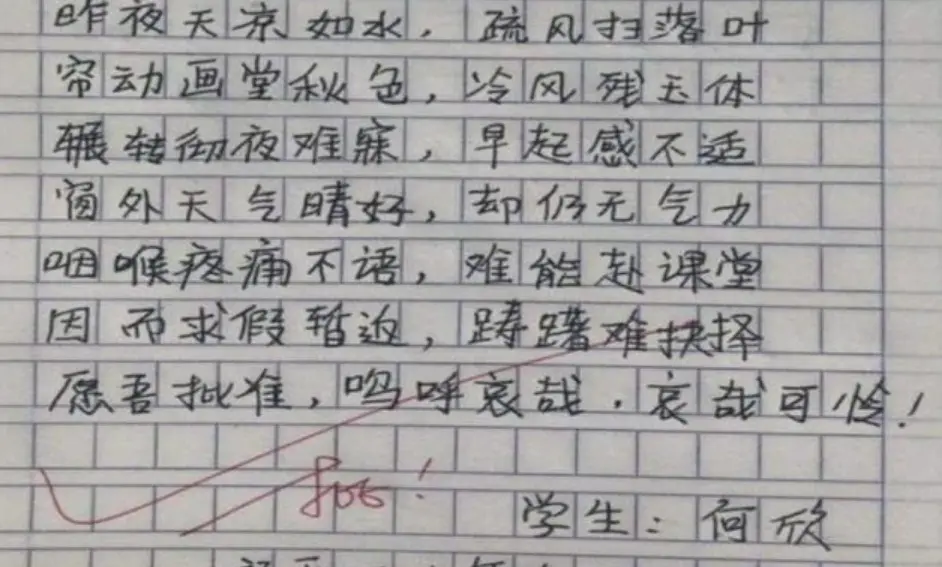 昨夜天凉如水，疏风扫落叶
帘动画堂秋色，冷风残玉体
辗转彻夜难寐，早起感不适
窗外天气晴好，却仍无气力
咽喉疼痛不语，难能赴课堂
因而求假暂迫，踌躇难抉择
愿吾批准，呜呼哀哉．哀哉可怜！
学生：何欣